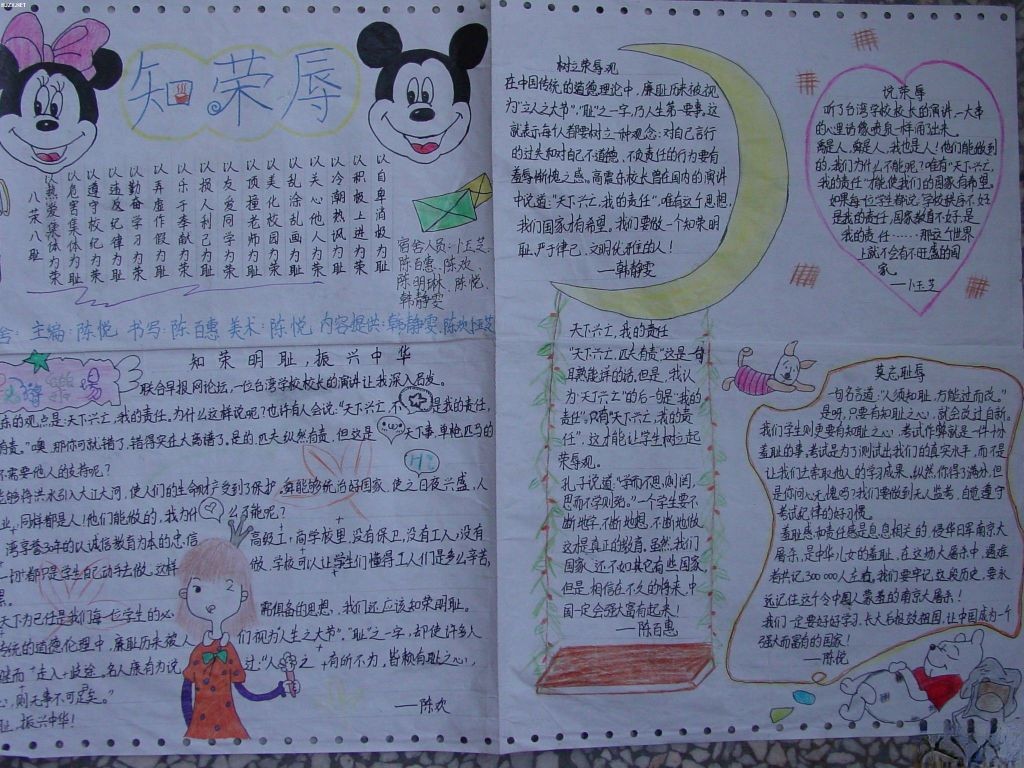 BJZX.NET
知荣辱
八荣八耻
以热爱集体为荣
以危害集体为耻
以遵守校纪为荣
以违反校纪为耻
以勤奋学习为荣
以弄虚作假为耻
以乐于奉献为荣
以损人利己为耻
以友爱同学为荣
以顶撞老师为耻
以美化校园为荣
以乱涂乱画为耻
以关心他人为荣
以冷潮热讽为耻
以积极上进为荣
以自卑消极为耻
宿舍人员:卜珏芝、
陈百惠、陈欢、
陈明琳、陈悦、
韩静雯
舍: 主编:陈悦 书写:陈百惠 美术:陈悦 内容提供:韩静雯
知荣明耻,振兴中华
联合早报网论坛,一位台湾学校校长的演讲让我深入启发。
东的观点是:天下兴亡,我的责任。为什么这样说呢?也许有人会说:“天下兴亡,不是我的责任,
有责。”噢,那你可就错了,错得实在太离谱了。是的,匹夫纵然有责,但这是天下事,单枪匹马的
不需要他人的支持呢?
能够将洪水引入大江大河,使人们的生命财产受到了保护,舜能够统治好国家,使之日夜兴盛,人
业,同样都是人!他们能做的,我为什么不能呢?
湾享誉30年的以诚信教育为本的忠信高级工商学校里,没有保卫,没有工人,没有
一切都只是学生自己动手去做,这样做,学校可以让学生们懂得工人们是多么辛苦,
果。
天下为己任是我们每一位学生的必需具备的思想,我们还应该知荣明耻。
传统的道德伦理中,廉耻历来被人们视为人生之大节”。“耻”之一字,却使许多人
继而“走入歧途。名人康有为说过:“人之有所不为,皆赖有耻之心,
心,则无事不可为矣。”
耻,振兴中华!
——陈欢
树立荣辱观
在中国传统的道德理论中,廉耻历来被视
为“立人之大节”。“耻”之一字,乃人生第一要事,这
就表示每个人都要树立一种观念:对自己言行
的过失和对自己不道德、不负责任的行为要有
羞辱惭愧之感。高震东校长曾在国内的演讲
中说道:“天下兴亡,我的责任”,唯有这个思想,
我们国家才有希望。我们要做一个知荣明
耻,严于律己,文明优雅的人!
——韩静雯
天下兴亡,我的责任
“天下兴亡,匹夫有责”这是一句
耳熟能详的话,但是,我认
为“天下兴亡”的后一句是“我的
责任”。只有“天下兴亡,我的责
任”,这才能让学生树立起
荣辱观。
孔子说道:“学而不思,则罔,
思而不学则殆。”一个学生要不
断地学,不断地想,不断地做,
这才是真正的教育。虽然,我们
国家还不如其它有些国家,
但是,相信在不久的将来,中
国一定会强大富有起来!
——陈百惠
说荣辱
听了台湾学校校长的演讲,一大串
的心里话像喷泉一样涌了出来。
禹是人,舜是人,我也是人!他们能做到
的,我们为什么不能呢?唯有“天下兴亡,
我的责任”才能使我们的国家有希望。
如果每位学生都说:学校秩序不好,
是我的责任,国家教育不好,是
我的责任……那这个世界
上就不会有不旺盛的国
家。
——卜珏芝
莫忘耻辱
一句名言道:“人须知耻,方能过而改。”
是呀,只要有知耻之心,就会改过自新。
我们学生则更要有知耻之心,考试作弊就是一件十分
羞耻的事,考试是为了测试出我们的真实水平,而不是
让我们去索取他人的学习成果,纵然,你得了满分,但
是你问心无愧吗?我们要做到无人监考,自觉遵守
考试纪律的好习惯。
羞耻感和责任感是息息相关的,侵华日军南京大
屠杀,是中华儿女的羞耻,在这场大屠杀中,遇难
者共记300 000人左右,我们要牢记这段历史,要永
远记住这个令中国人蒙羞的南京大屠杀!
我们一定要好好学习,长大后报效祖国,让中国成为一个
强大而富有的国家!
——陈悦